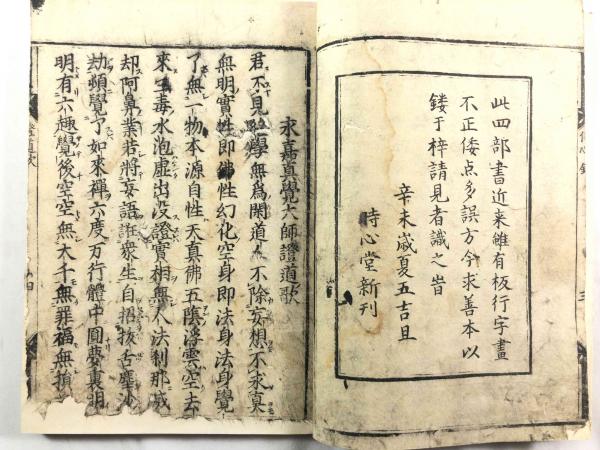 此四部書近来雖有板行字畫
不正倭点多誤方今求善本以
鋟于梓請見者識之旹
辛未歳夏五吉旦
時心堂新刊
永嘉真覺大師證道歌
君不見絶學無為閑道人不除妄想不求真
無明實性即佛性幻化空身即法身法身覺
了無一物本源自性天真佛五陰浮雲空去
來三毒水泡虛出没證實相無人法刹那滅
却阿鼻業若將妄語誑衆生自招拔舌塵沙
劫頓覺了如來禪六度万行體中圓夢裏明
明有六趣覺後空空無大千無罪福無損
證道歌